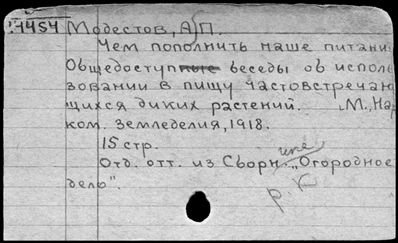 1454 Модестов, А.П.
Чем пополнить наше питани
Общедоступные беседы об исполь
зовании в пищу частовстречаю
щихся диких растений. М., Нар
ком. земледелия, 1918.
15 стр.
Отд. отт. из Сборн. „Огородное
дело".
р.к